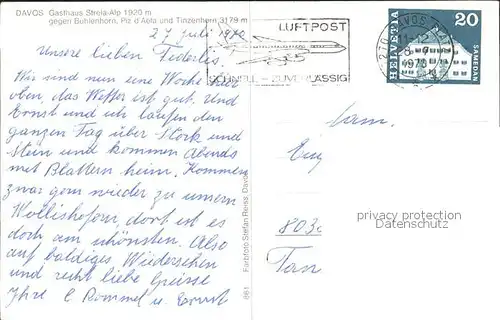 DAVOS Gasthaus Strela-Alp 1920 m
gegen Buhlenhorn, Piz d'Aela und Tinzenhorn 3179 m
27 juli 1970
Unsere lieben Federlis.
Wir sind nun eine Woche hier
oben, das Wetter ist gut. Und
Ernst und ich laufen den
ganzen Tag über Stock und
Stein und kommen Abends
mit Blattern heim. Kommen
zwar gern wieder zu unsern
Wollishofern, dort ist es
doch am schönsten. Also
auf baldiges Wiedersehen
und recht liebe Grüsse
Ihre E Rommel u. Ernst
661 Farbfoto Stefan Reiss, Davos
LUFTPOST
SCHNELL - ZUVERLÄSSIG
DAVOS
1970
HELVETIA
20
SAMEDAN
Fam.
803
privacy protection
Datenschutz